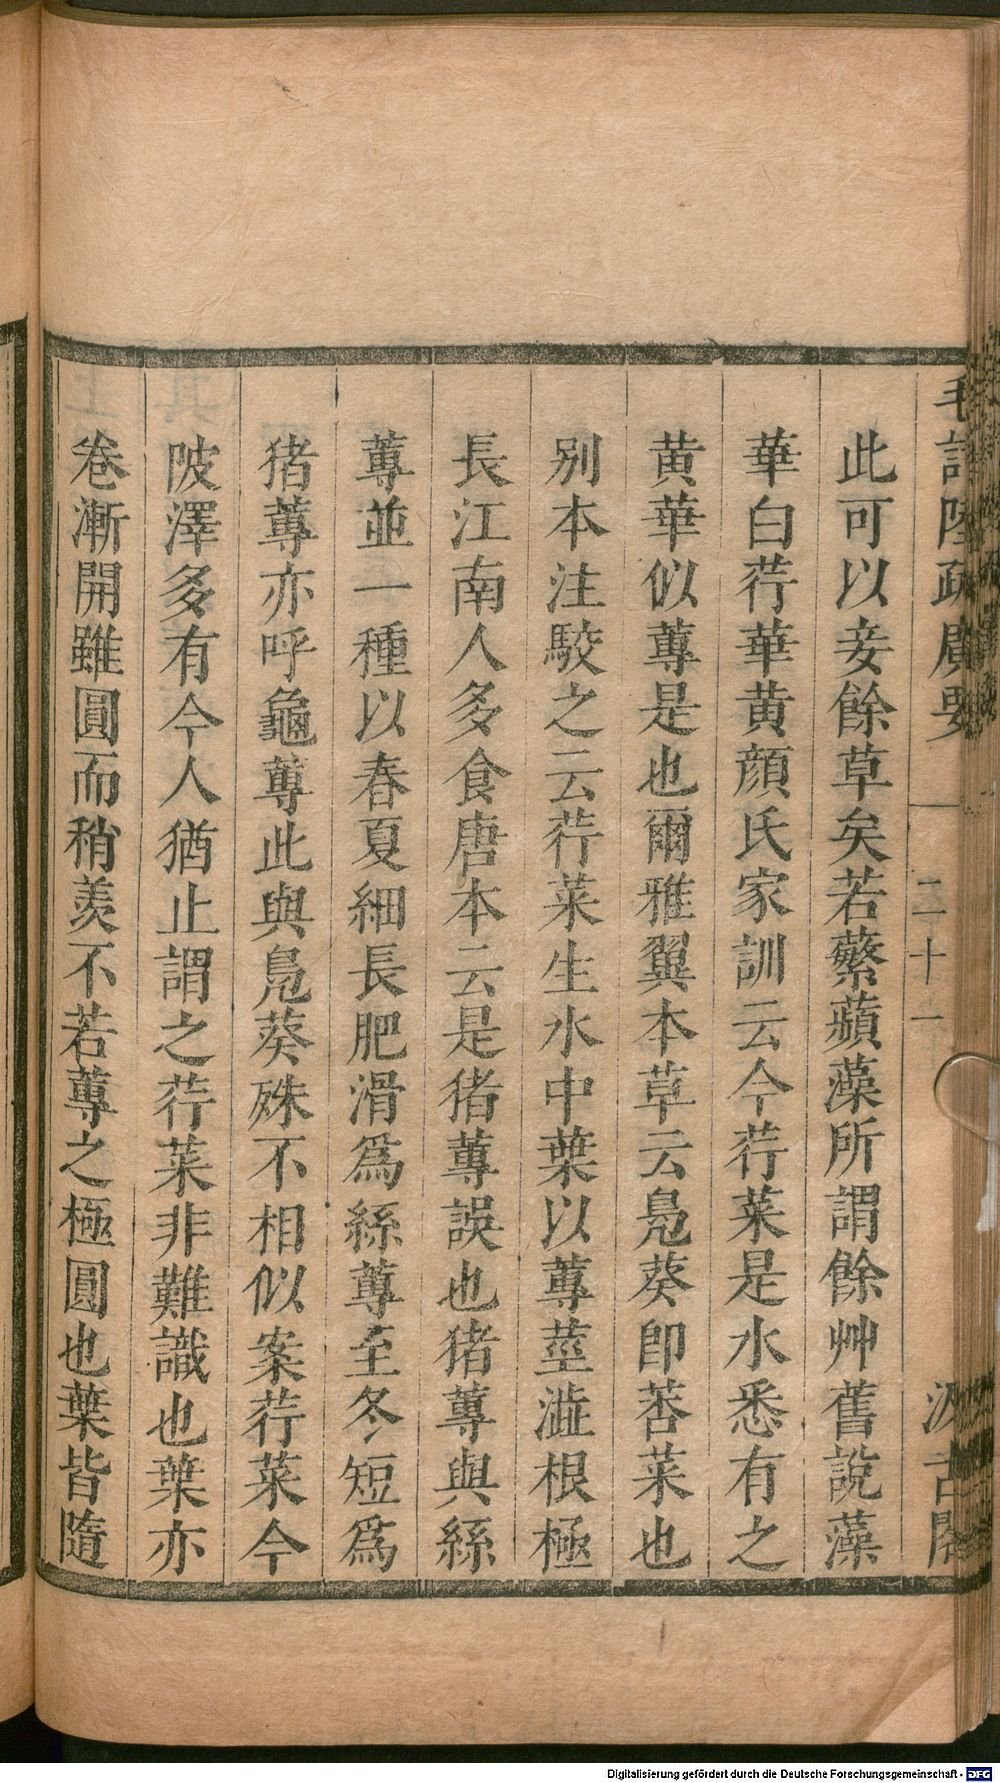 毛詩陸疏廣要
二十一
汲古閣
此可以妾餘草矣若蘩蘋藻所謂餘艸舊說藻
華白荇華黃顏氏家訓云今荇菜是水悉有之
黃華似蓴是也爾雅翼本草云鳧葵卽莕菜也
別本注駮之云荇菜生水中葉以蓴莖澁根極
長江南人多食唐本云是猪蓴誤也猪蓴與絲
蓴並一種以春夏細長肥滑爲絲蓴至冬短爲
猪蓴亦呼龜蓴此與鳧葵殊不相似案荇菜今
陂澤多有今人猶止謂之荇菜非難識也葉亦
卷漸開雖圓而稍羨不若蓴之極圓也葉皆隨
Digitalisierung gefördert durch die Deutsche Forschungsgemeinschaft - DFG